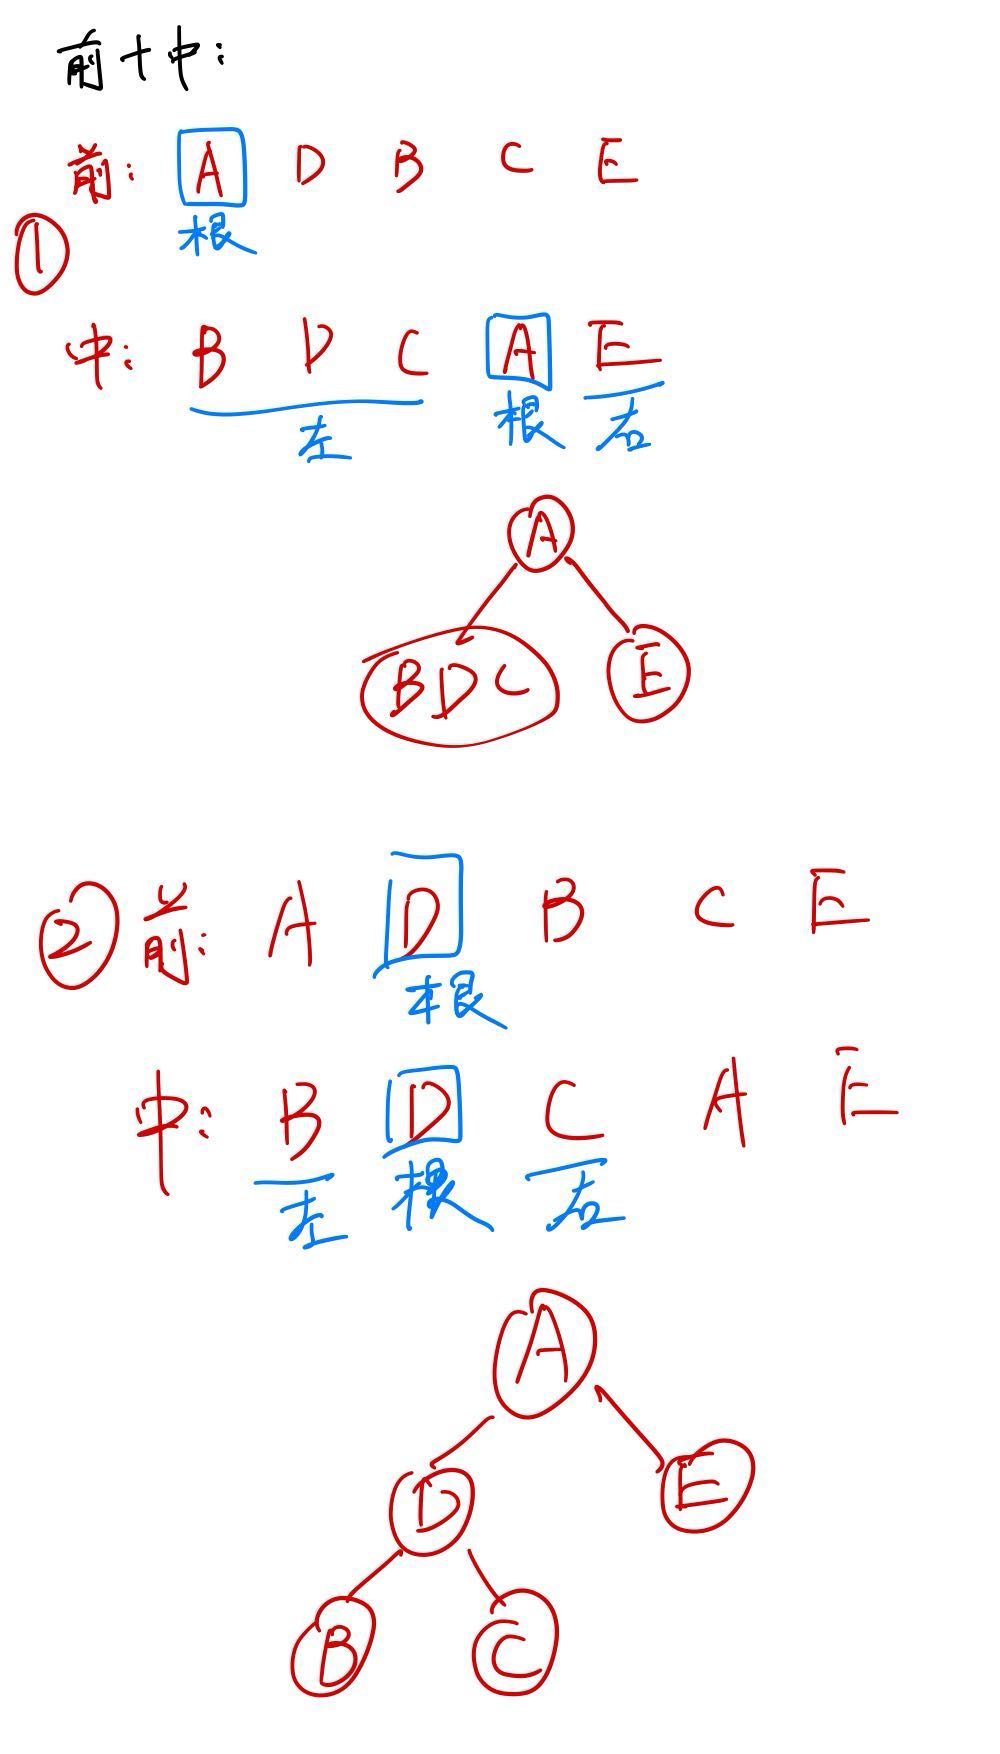 前+中:
前: A D B C E
①
根
中: B D C A E
左 根 右
A
BDC E
② 前: A D B C E
根
中: B D C A E
左 根 右
A
D E
B C